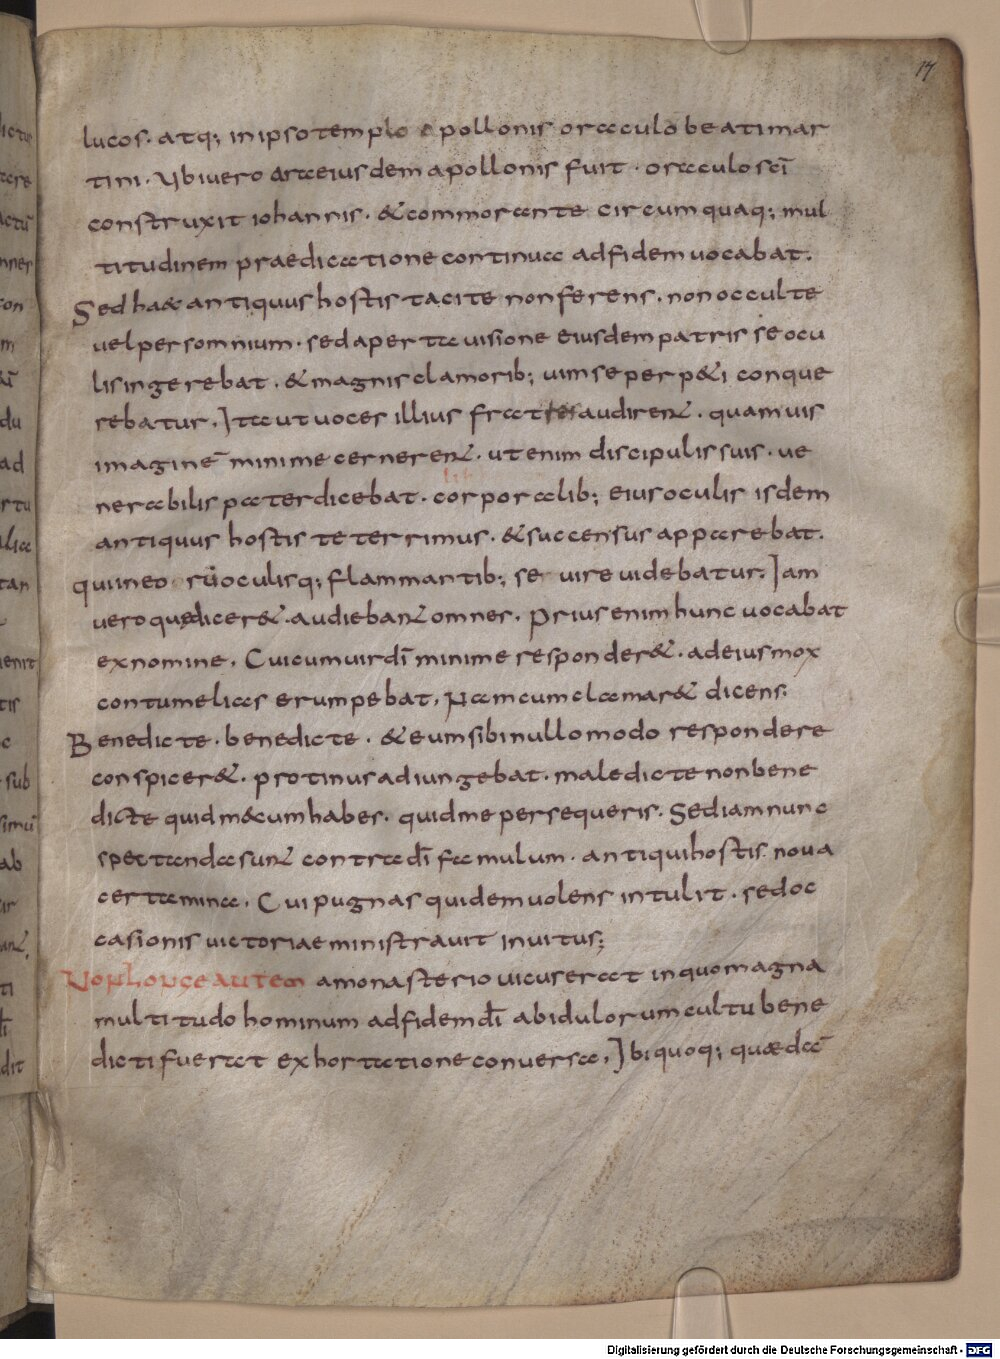 17
lucos. atq; in ipso templo apollonis oraculo beati mar
tini. Ubi vero ara eiusdem apollonis fuit. oraculo scī
construxit iohannis. & commorante circumquaq; mul
titudinem praedicatione continua ad fidem uocabat.
Sed ha& antiquus hostis tacite non ferens. non occulte
uel per somnium. sed aperta uisione eiusdem patris se ocu
lis ingerebat. & magnis clamorib; uim se perp&i conque
rebatur. Ita ut uoces illius fratres audirent. quamuis
imaginē minime cernerent. ut enim discipulis suis. ue
nerabilis pater dicebat. corporalib; eius oculis isdem
antiquus hostis teterrimus. & succensus apparebat.
qui in eo rū oculisq; flammantib; se uire uidebatur. Iam
uero quę dicer& audiebant omnes. Prius enim hunc uocabat
ex nomine. Cui cum uir dī minime responder&. ad eius mox
contumelias erumpebat. Nam cum clamar& dicens.
Benedicte. benedicte. & eum sibi nullo modo respondere
conspicer&. protinus adiungebat. maledicte non bene
dicte quid mecum habes. quid me persequeris. Sed iam nunc
spectanda sunt contra dī famulum. antiqui hostis noua
certamina. Cui pugnas quidem uolens intulit. sed oc
casionis uictoriae ministrauit inuitus;
Non longe autem a monasterio uicus erat in quo magna
multitudo hominum ad fidem dī ab idulorum cultu bene
dicti fuerat exhortatione conuersa. Ibi quoq; quædā
Digitalisierung gefördert durch die Deutsche Forschungsgemeinschaft - DFG